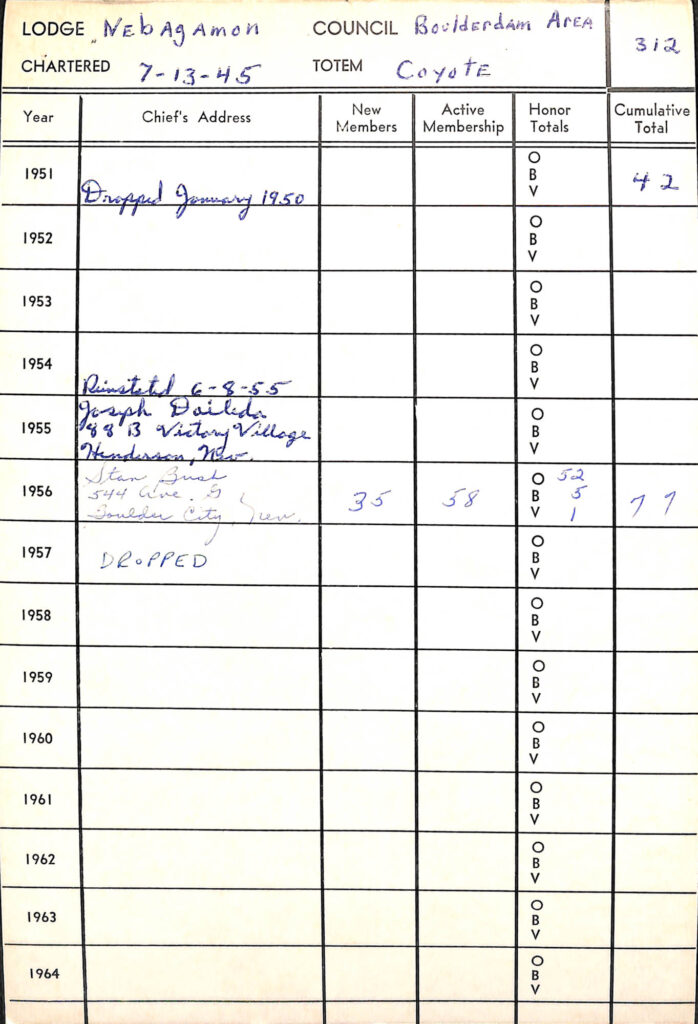 LODGE Nebagamon COUNCIL Boulderdam Area 312
CHARTERED 7-13-45 TOTEM Coyote
Year Chief's Address New Members Active Membership Honor Totals Cumulative Total
1951 O B V 42
Dropped January 1950
1952 O B V
1953 O B V
1954 O B V
Reinstatd 6-8-55
Joseph
1955 88 B Victory Village O B V
Henderson, Nev.
Stan Bush O 52
1956 544 Ave. G 35 58 B 5 77
Boulder City, Nev. V 1
1957 DROPPED O B V
1958 O B V
1959 O B V
1960 O B V
1961 O B V
1962 O B V
1963 O B V
1964 O B V